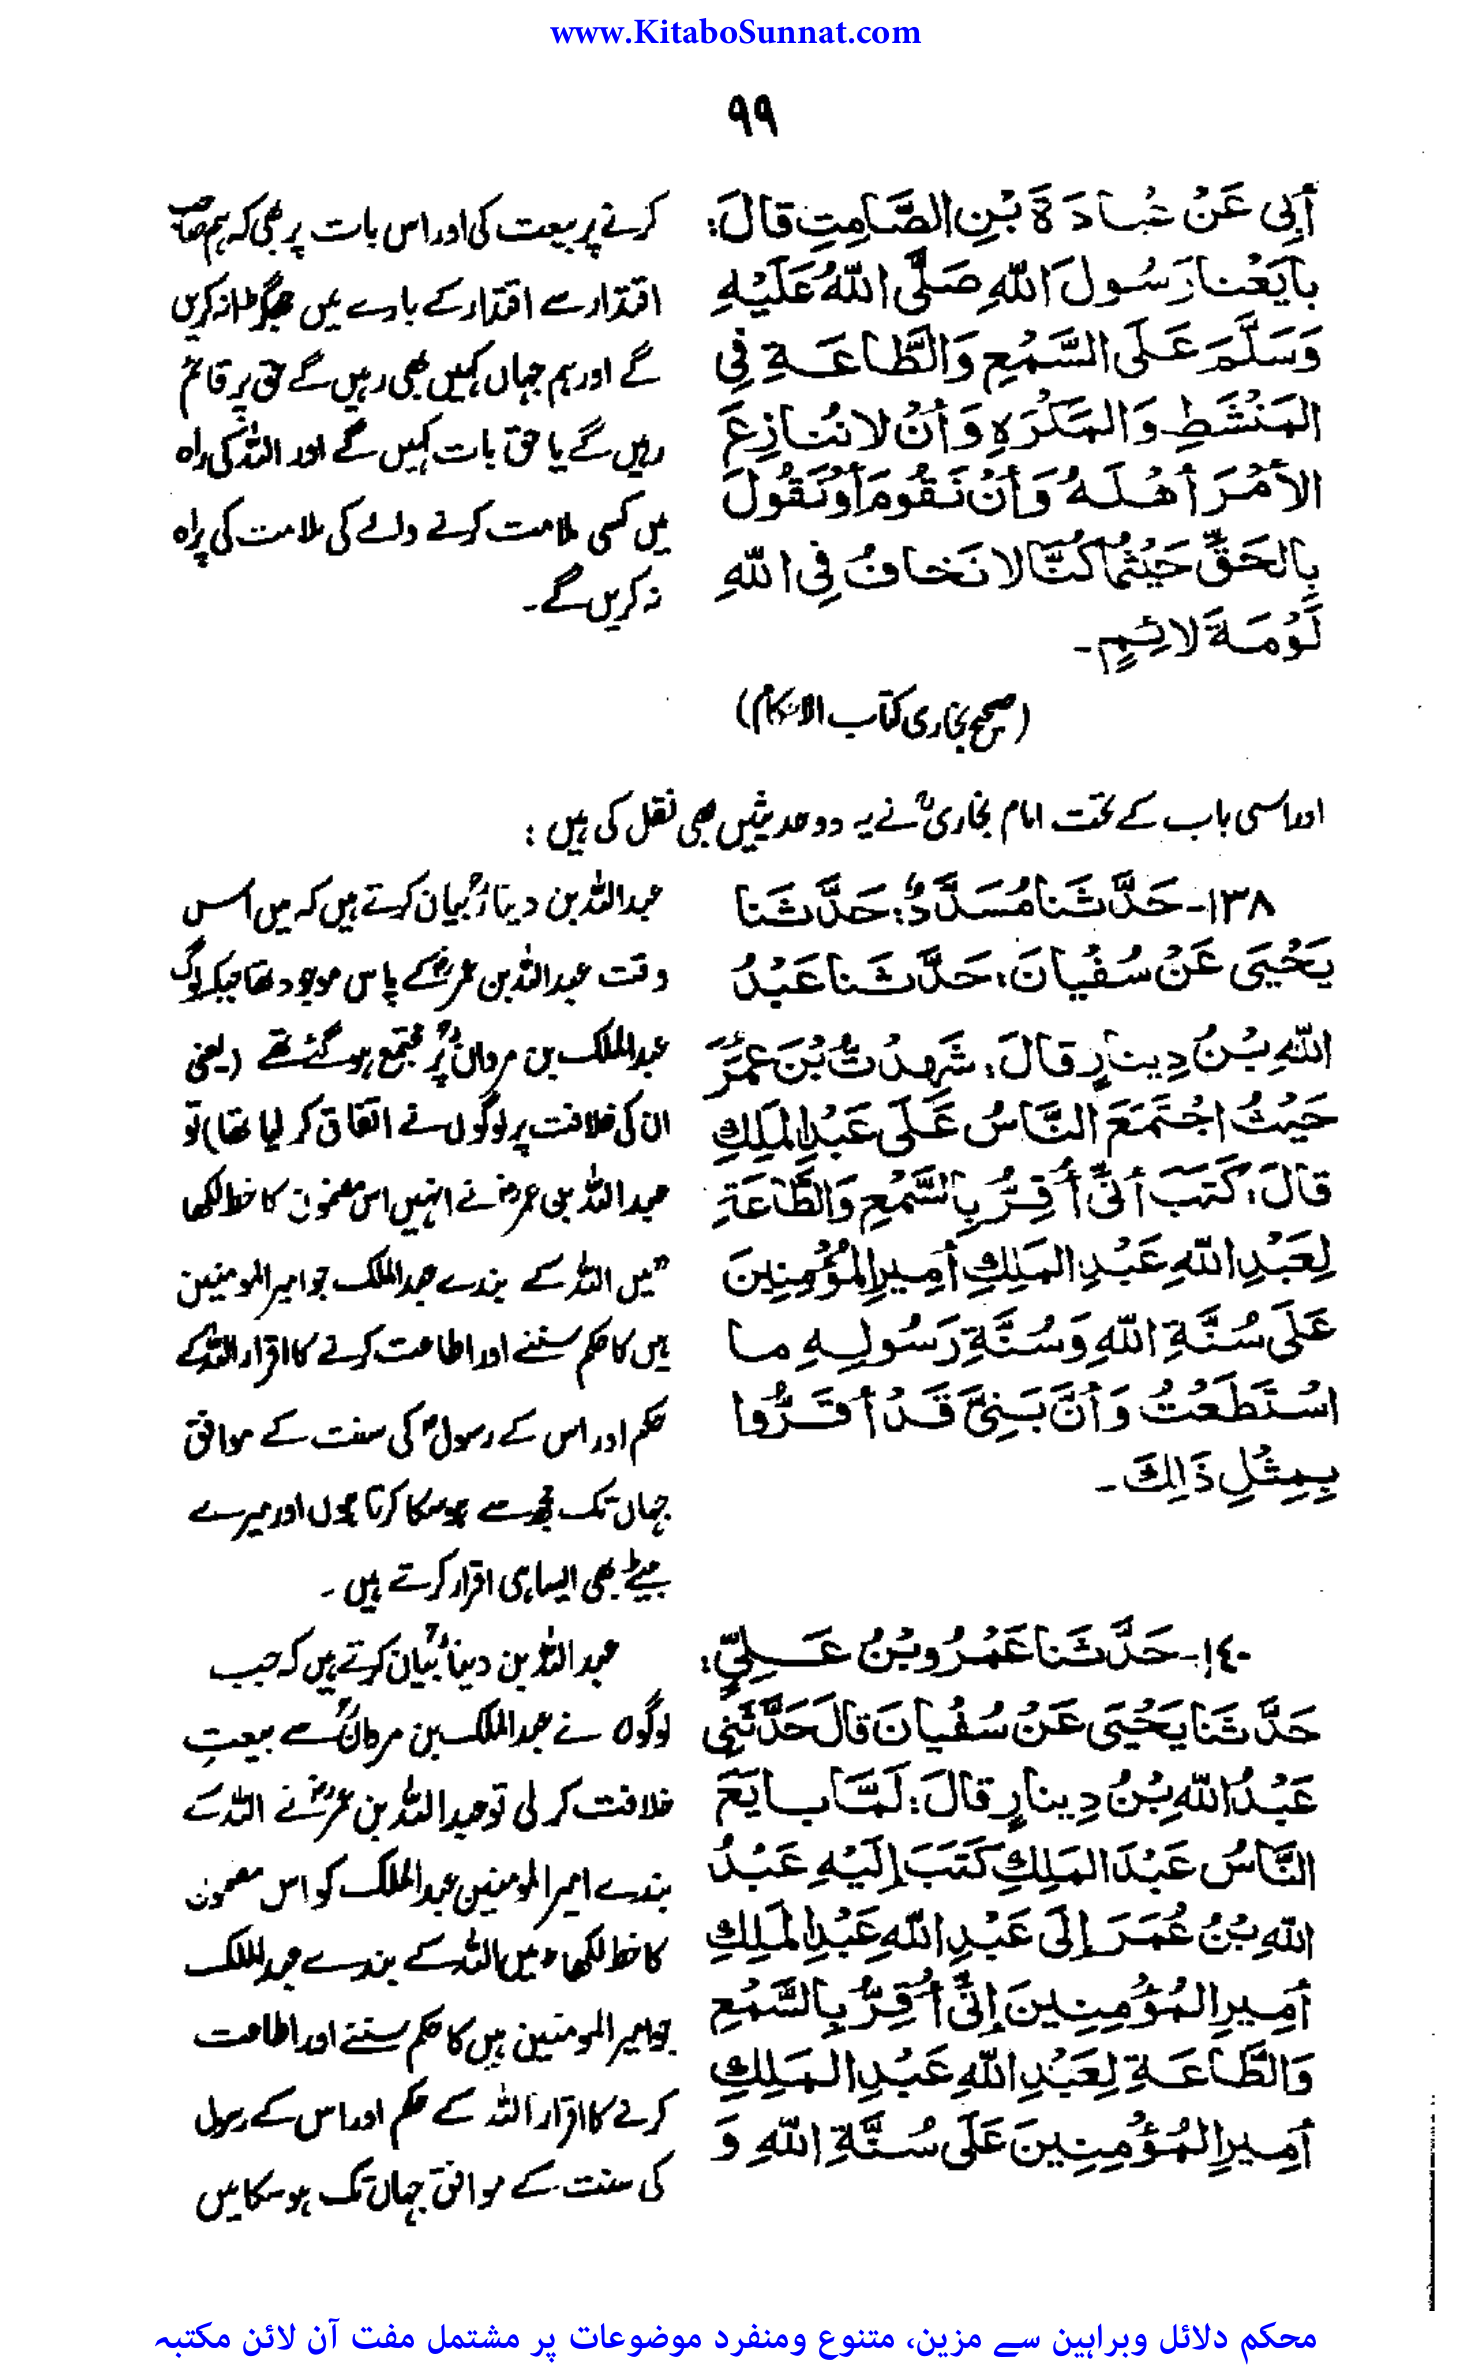 www.KitaboSunnat.com
۹۹
أَبِي عَنْ عُبَادَةَ بْنِ الصَّامِتِ قَالَ:
بَايَعْنَا رَسُولَ اللّٰهِ صَلَّى اللّٰهُ عَلَيْهِ
وَسَلَّمَ عَلَى السَّمْعِ وَالطَّاعَةِ فِي
المَنْشَطِ وَالمَكْرَهِ وَأَنْ لا نُنَازِعَ
الأَمْرَ أَهْلَهُ وَأَنْ نَقُومَ أَوْ نَقُولَ
بِالحَقِّ حَيْثُمَا كُنَّا لا نَخَافُ فِي اللّٰهِ
لَوْمَةَ لائِمٍ۔
(صحیح بخاری کتاب الاحکام)
کرنے پر بیعت کی اور اس بات پر بھی کہ ہم صاحب
اقتدار سے اقتدار کے بارے میں جھگڑا نہ کریں
گے اور ہم جہاں کہیں بھی رہیں گے حق پر قائم
رہیں گے یا حق بات کہیں گے اور اللہ کی راہ
میں کسی ملامت کرنے والے کی ملامت کی پراہ
نہ کریں گے۔
اور اسی باب کے تحت امام بخاریؒ نے یہ دو حدیثیں بھی نقل کی ہیں:
۱۳۸۔ حَدَّثَنَا مُسَدَّدٌ: حَدَّثَنَا
يَحْيَى عَنْ سُفْيَانَ، حَدَّثَنَا عَبْدُ
اللّٰهِ بْنُ دِينَارٍ قَالَ: شَهِدْتُ بْنَ عُمَرَ
حَيْثُ اجْتَمَعَ النَّاسُ عَلَى عَبْدِ المَلِكِ
قَالَ: كَتَبَ أَنِّي أُقِرُّ بِالسَّمْعِ وَالطَّاعَةِ
لِعَبْدِ اللّٰهِ عَبْدِ المَلِكِ أَمِيرِ المُؤْمِنِينَ
عَلَى سُنَّةِ اللّٰهِ وَسُنَّةِ رَسُولِهِ مَا
اسْتَطَعْتُ وَأَنَّ بَنِيَّ قَدْ أَقَرُّوا
بِمِثْلِ ذَالِكَ۔
عبداللہ بن دینارؒ بیان کرتے ہیں کہ میں اس
وقت عبداللہ بن عمرؓ کے پاس موجود تھا جبکہ لوگ
عبدالملک بن مروانؒ پر مجتمع ہوگئے تھے (یعنی
ان کی خلافت پر لوگوں نے اتفاق کر لیا تھا) تو
عبداللہ بن عمرؓ نے انہیں اس مضمون کا خط لکھا
”میں اللہ کے بندے عبدالملک جو امیر المومنین
ہیں کا حکم سننے اور اطاعت کرنے کا اقرار اللہ کے
حکم اور اس کے رسولؐ کی سنت کے موافق
جہاں تک مجھ سے ہوسکا کرتا ہوں اور میرے
بیٹے بھی ایسا ہی اقرار کرتے ہیں۔
۱٤۰۔ حَدَّثَنَا عَمْرُو بْنُ عَلِيٍّ:
حَدَّثَنَا يَحْيَى عَنْ سُفْيَانَ قَالَ حَدَّثَنِي
عَبْدُ اللّٰهِ بْنُ دِينَارٍ قَالَ: لَمَّا بَايَعَ
النَّاسُ عَبْدَ المَلِكِ كَتَبَ إِلَيْهِ عَبْدُ
اللّٰهِ بْنُ عُمَرَ إِلَى عَبْدِ اللّٰهِ عَبْدِ المَلِكِ
أَمِيرِ المُؤْمِنِينَ إِنِّي أُقِرُّ بِالسَّمْعِ
وَالطَّاعَةِ لِعَبْدِ اللّٰهِ عَبْدِ المَلِكِ
أَمِيرِ المُؤْمِنِينَ عَلَى سُنَّةِ اللّٰهِ وَ
عبداللہ بن دینارؒ بیان کرتے ہیں کہ جب
لوگوں نے عبدالملک بن مروانؒ سے بیعتِ
خلافت کر لی تو عبداللہ بن عمرؓ نے اللہ کے
بندے امیر المومنین عبدالملک کو اس مضمون
کا خط لکھا ”میں اللہ کے بندے عبدالملک
جو امیر المومنین ہیں کا حکم سننے اور اطاعت
کرنے کا اقرار اللہ کے حکم اور اس کے رسول
کی سنت کے موافق جہاں تک ہوسکا میں
محکم دلائل وبراہین سے مزین، متنوع ومنفرد موضوعات پر مشتمل مفت آن لائن مکتبہ